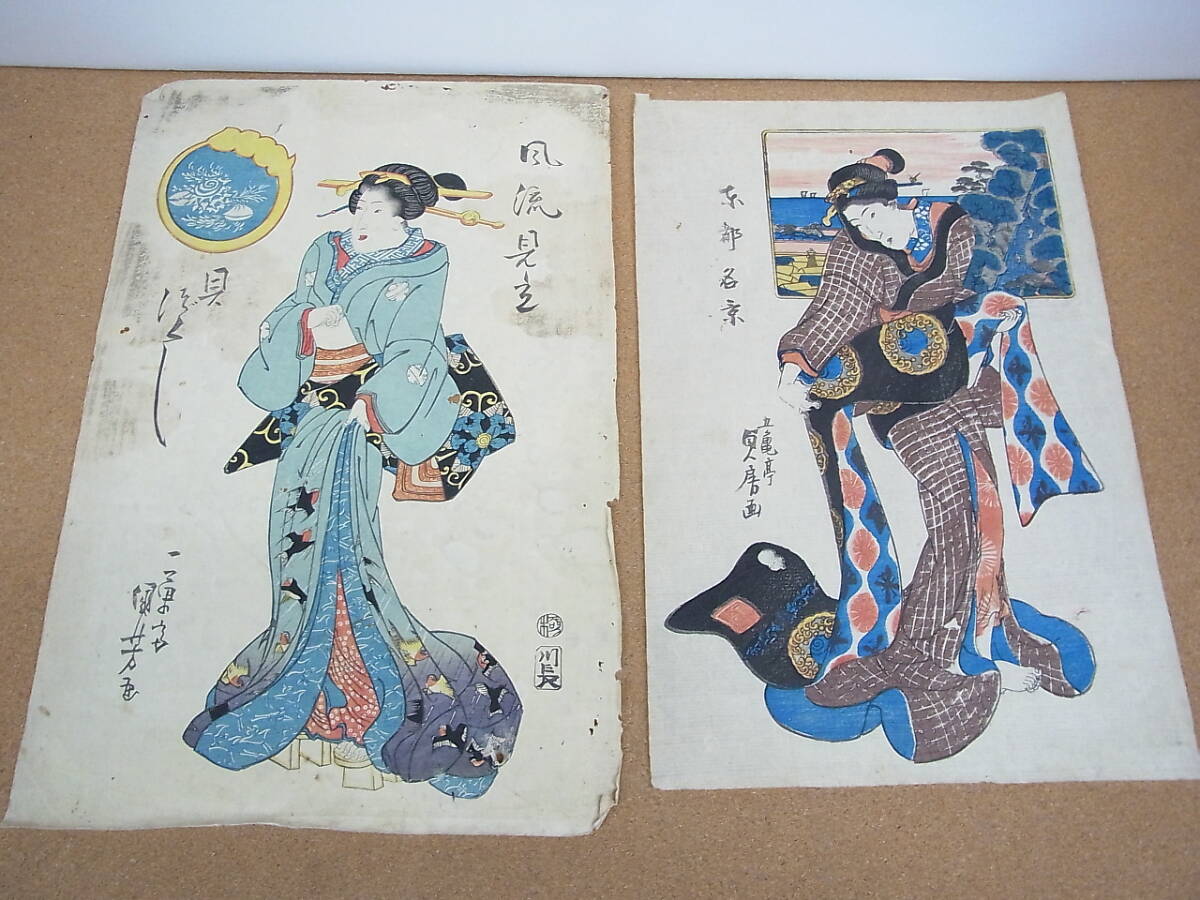 風流見立
貝づくし
一勇斎
國芳画
極
川長
東都名景
五亀亭
貞房画